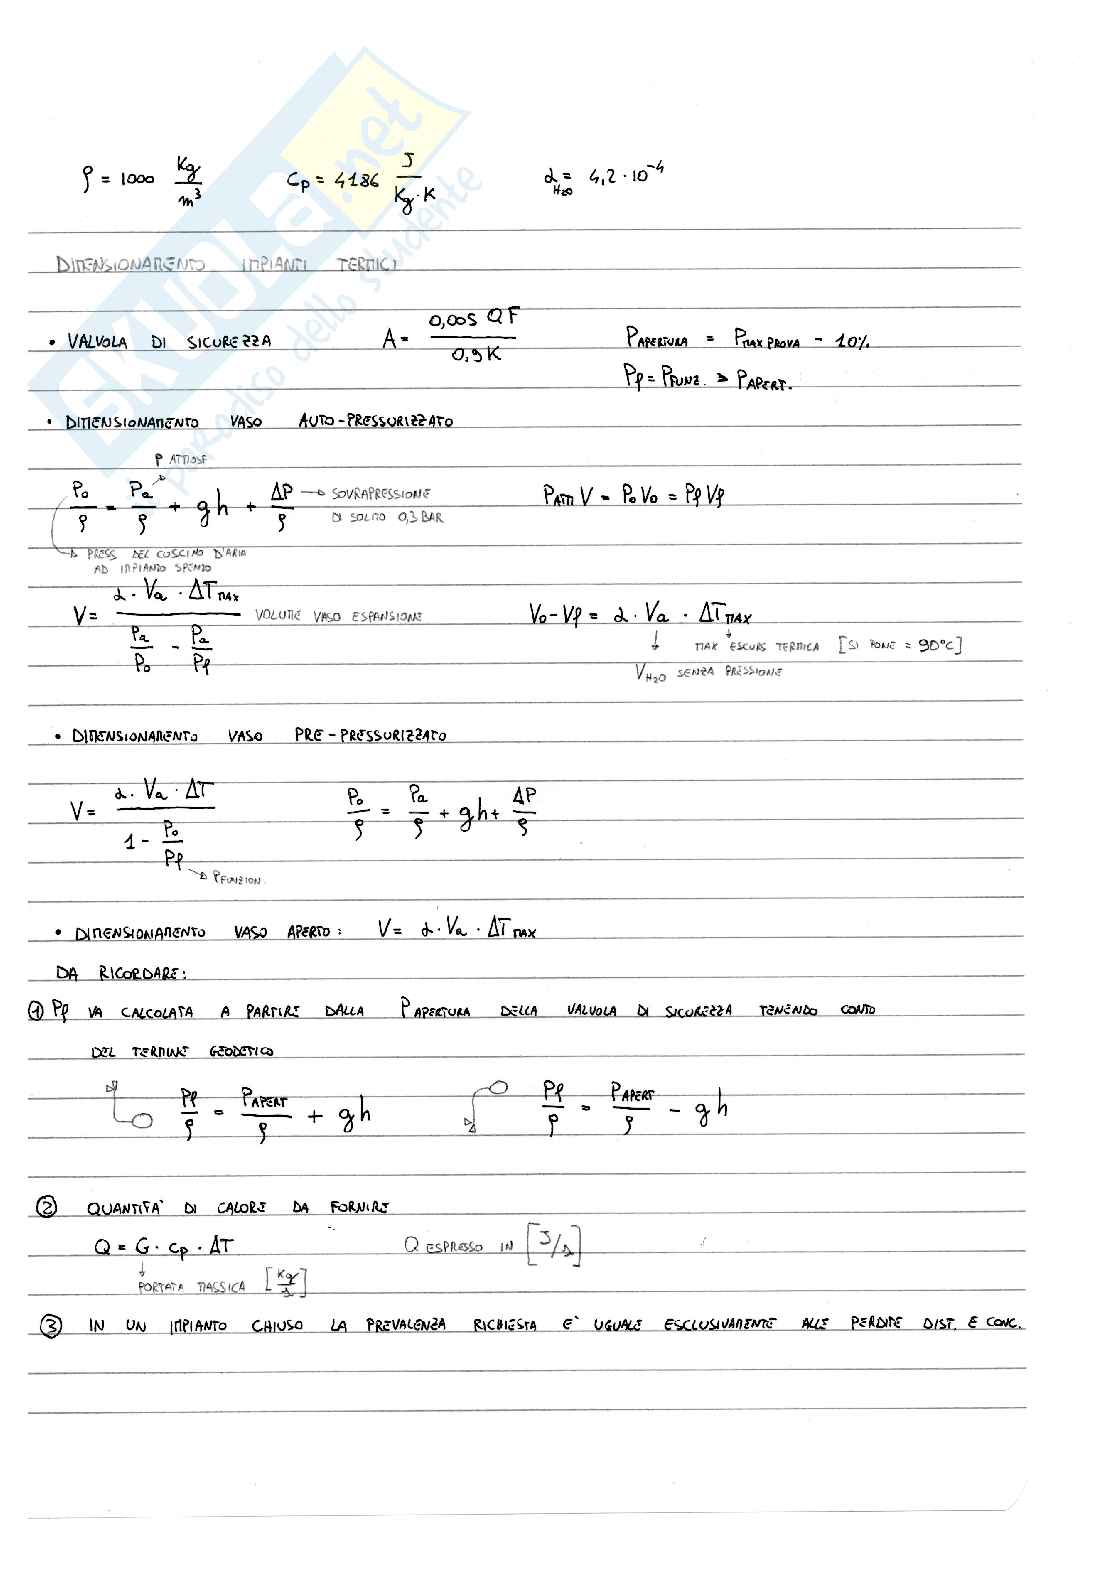 SKUOLA.net
paradiso dello studente
ρ = 1000 Kg/m³ Cp = 4186 J/(Kg·K) α H2O = 4,2·10⁻⁴
DIMENSIONAMENTO IMPIANTI TERMICI
• VALVOLA DI SICUREZZA A = 0,005 Q F / 0,9 K P APERTURA = P MAX PROVA - 10%
Pf = P FUNZ. > P APERT.
• DIMENSIONAMENTO VASO AUTO-PRESSURIZZATO
P ATMOSF
Po/ρ = Pa/ρ + gh + ΔP/ρ → SOVRAPRESSIONE DI SOLITO 0,3 BAR P ATM V = Po Vo = Pf Vf
→ PRESS DEL CUSCINO D'ARIA
AD IMPIANTO SPENTO
V = α · Va · ΔT MAX / (Pa/Po - Pa/Pf) VOLUME VASO ESPANSIONE Vo - Vf = α · Va · ΔT MAX
MAX ESCURS TERMICA [SI PONE = 90°C]
V H2O SENZA PRESSIONE
• DIMENSIONAMENTO VASO PRE-PRESSURIZZATO
V = α · Va · ΔT / (1 - Po/Pf) Po/ρ = Pa/ρ + gh + ΔP/ρ
→ P FUNZION.
• DIMENSIONAMENTO VASO APERTO: V = α · Va · ΔT MAX
DA RICORDARE:
① Pf VA CALCOLATA A PARTIRE DALLA P APERTURA DELLA VALVOLA DI SICUREZZA TENENDO CONTO
DEL TERMINE GEODETICO
Pf/ρ = P APERT/ρ + gh Pf/ρ = P APERT/ρ - gh
② QUANTITA' DI CALORE DA FORNIRE
Q = G · cp · ΔT Q ESPRESSO IN [J/s]
PORTATA MASSICA [Kg/s]
③ IN UN IMPIANTO CHIUSO LA PREVALENZA RICHIESTA E' UGUALE ESCLUSIVAMENTE ALLE PERDITE DIST. E CONC.